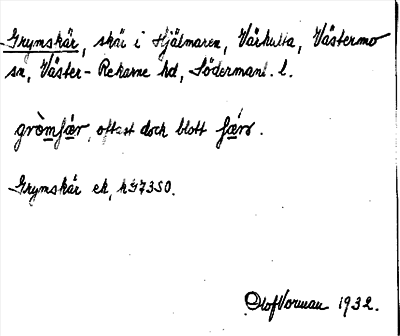 Grymskär, skär i Hjälmaren, Vårhulta, Västermo
sn, Väster-Rekarne hd, Södermanl. l.
gròmʃær, oftast dock blott ʃærs.
Grymskär ek, h57350.
Olof Vorman 1932.